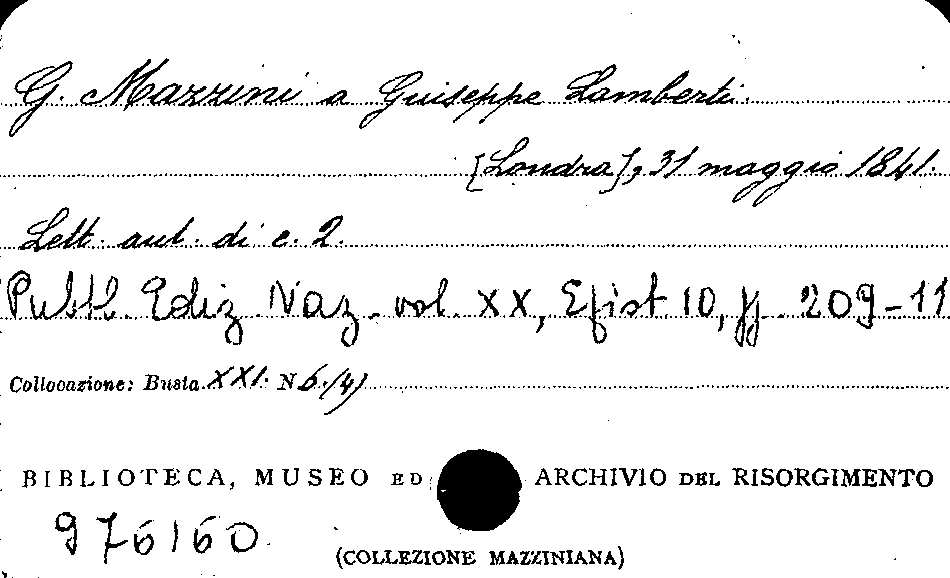 G. Mazzini a Guiseppe Lamberti.
[Londra], 31 maggio 1841.
Lett. aut. di c. 2.
Pubbl. Ediz. Naz. vol. XX, Epist 10, pp. 209-11
Collocazione: Busta XXI. N 6./4)
BIBLIOTECA, MUSEO ED ARCHIVIO DEL RISORGIMENTO
976160
(COLLEZIONE MAZZINIANA)